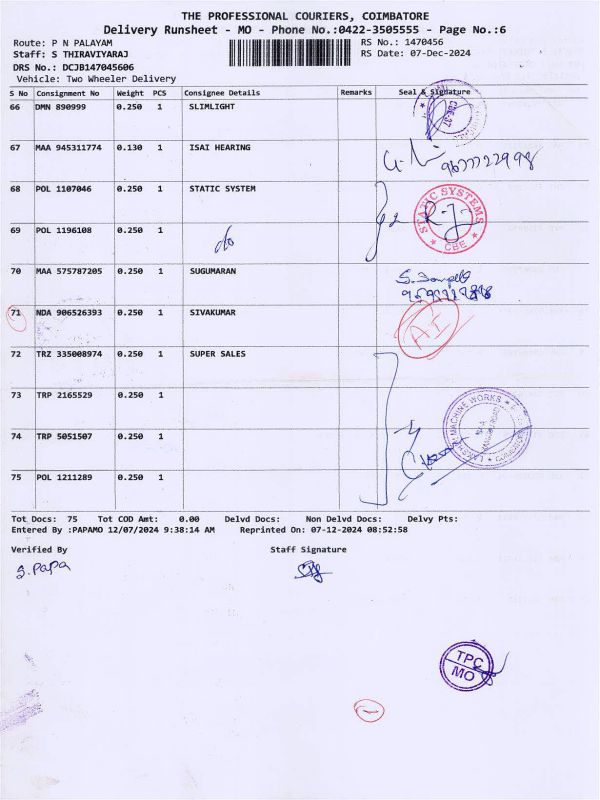 THE PROFESSIONAL COURIERS, COIMBATORE
Delivery Runsheet - MO - Phone No.:0422-3505555 - Page No.:6
Route: P N PALAYAM RS No.: 1470456
Staff: S THIRAVIYARAJ RS Date: 07-Dec-2024
DRS No.: DCJB147045606
Vehicle: Two Wheeler Delivery
S No Consignment No Weight PCS Consignee Details Remarks Seal & Signature
66 DMN 890999 0.250 1 SLIMLIGHT
67 MAA 945311774 0.130 1 ISAI HEARING
68 POL 1107046 0.250 1 STATIC SYSTEM
STATIC SYSTEMS
CBE
69 POL 1196108 0.250 1 do
70 MAA 575787205 0.250 1 SUGUMARAN
71 NDA 906526393 0.250 1 SIVAKUMAR
72 TRZ 335008974 0.250 1 SUPER SALES
73 TRP 2165529 0.250 1
74 TRP 5051507 0.250 1
MACHINE WORKS
75 POL 1211289 0.250 1
Tot Docs: 75 Tot COD Amt: 0.00 Delvd Docs: Non Delvd Docs: Delvy Pts:
Entered By :PAPAMO 12/07/2024 9:38:14 AM Reprinted On: 07-12-2024 08:52:58
Verified By Staff Signature
S. Papa
TPC
MO